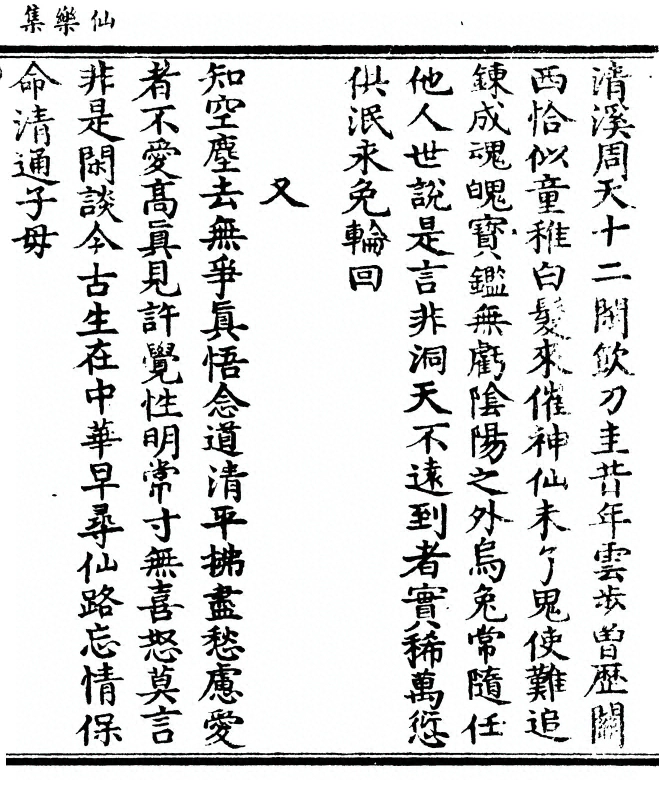 仙樂集
清溪周天十二關飲刀圭昔年雲步曾歷關
西恰似童稚白髮來催神仙未了鬼使難追
鍊成魂魄寶鑑無虧陰陽之外烏兔常隨任
他人世說是言非洞天不遠到者實稀萬愆
俱泯永免輪回
又
知空塵去無爭真悟念道清平拂盡愁慮愛
者不愛高真見許覺性明常寸無喜怒莫言
非是閑談今古生在中華早尋仙路忘情保
命清通子母